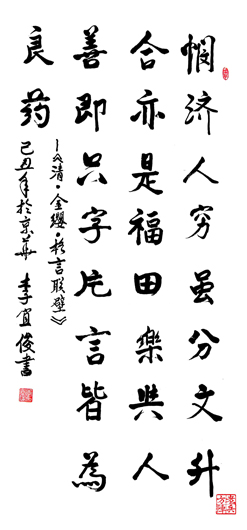 悯济人穷虽分文升
合亦是福田樂與人
善即只字片言皆為
良药
—《清·金缨·格言联璧》
己丑年於京華 李宜俊書